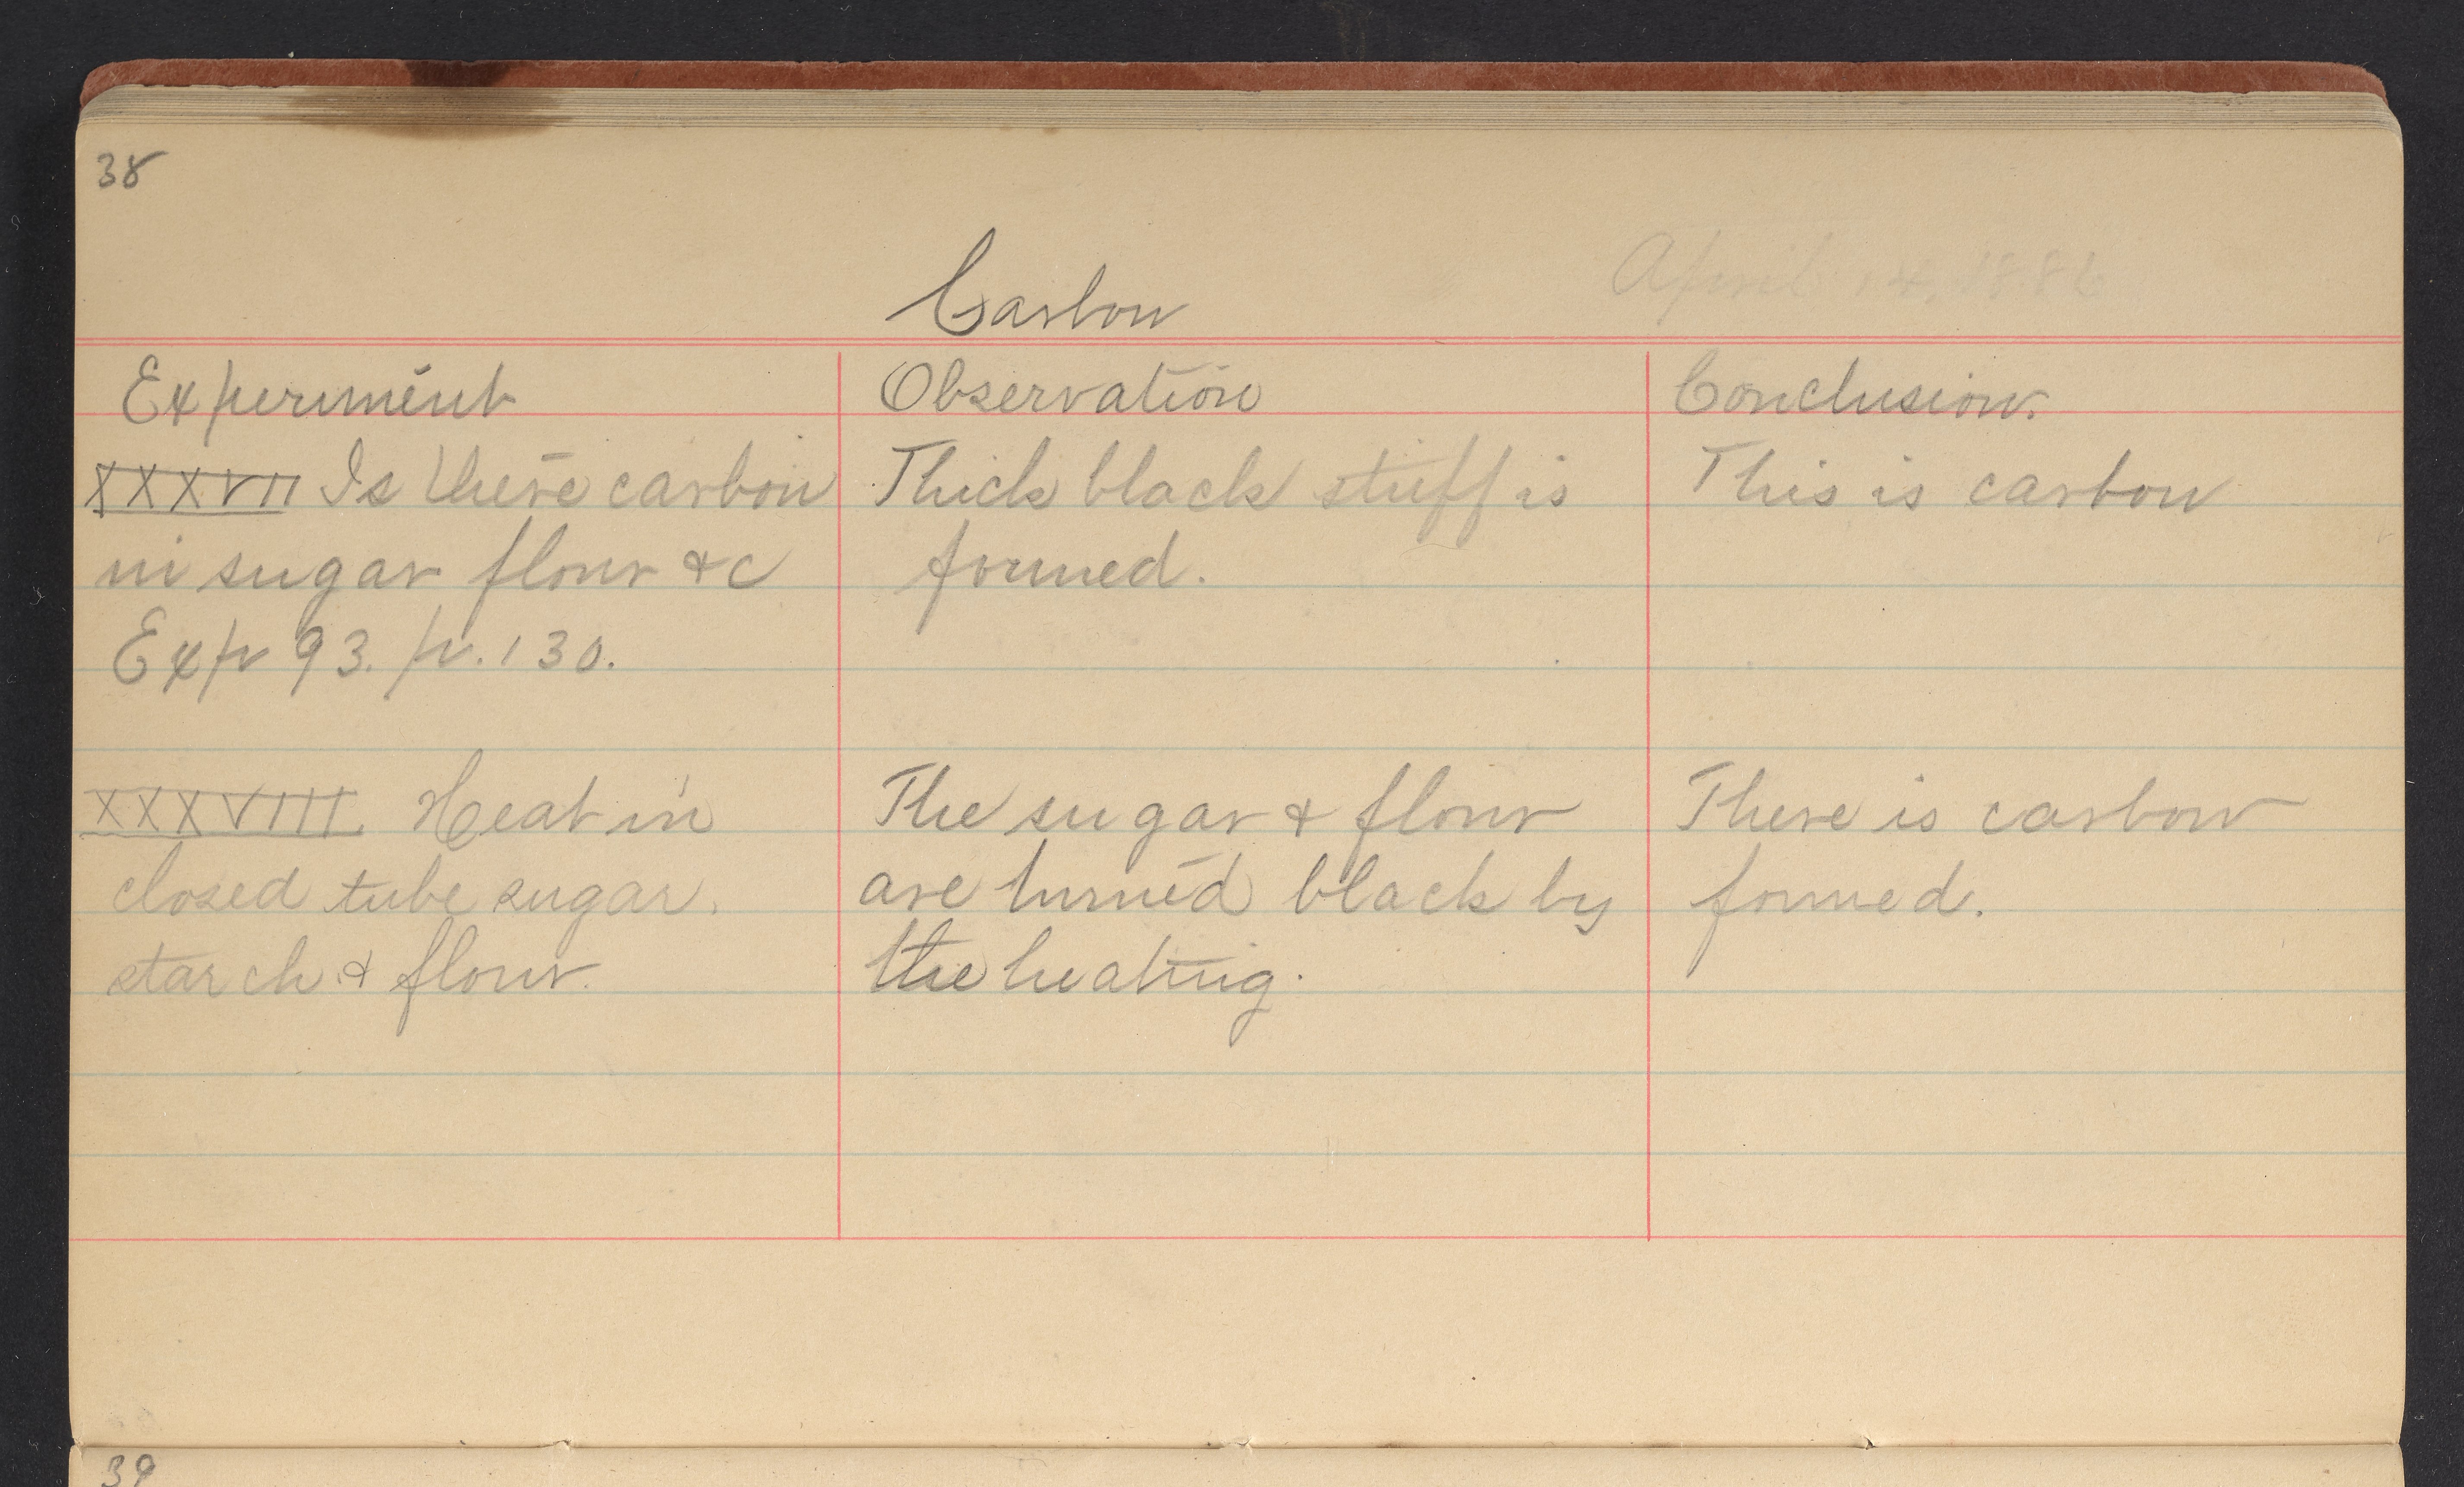 38
Carbon
April 1886
Experiment
Observation
Conclusion.
XXXVII Is there carbon
in sugar flour &c
Exp 93. p. 130.
Thick black stuff is
formed.
This is carbon
XXXVIII. Heat in
closed tube sugar.
starch & flour.
The sugar & flour
are turned black by
the heating.
There is carbon
formed.
39